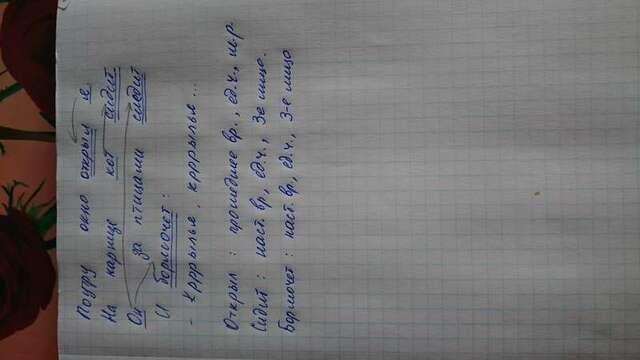 Поутру окно открыл я
На карнизе кот сидит
Он за птицами следит
И бормочет:
- Кррррылья, кррррылья...
Открыл: прошедшее вр., ед.ч., м.р.
Сидит: наст. вр, ед.ч., 3е лицо.
Бормочет: наст. вр, ед.ч., 3-е лицо